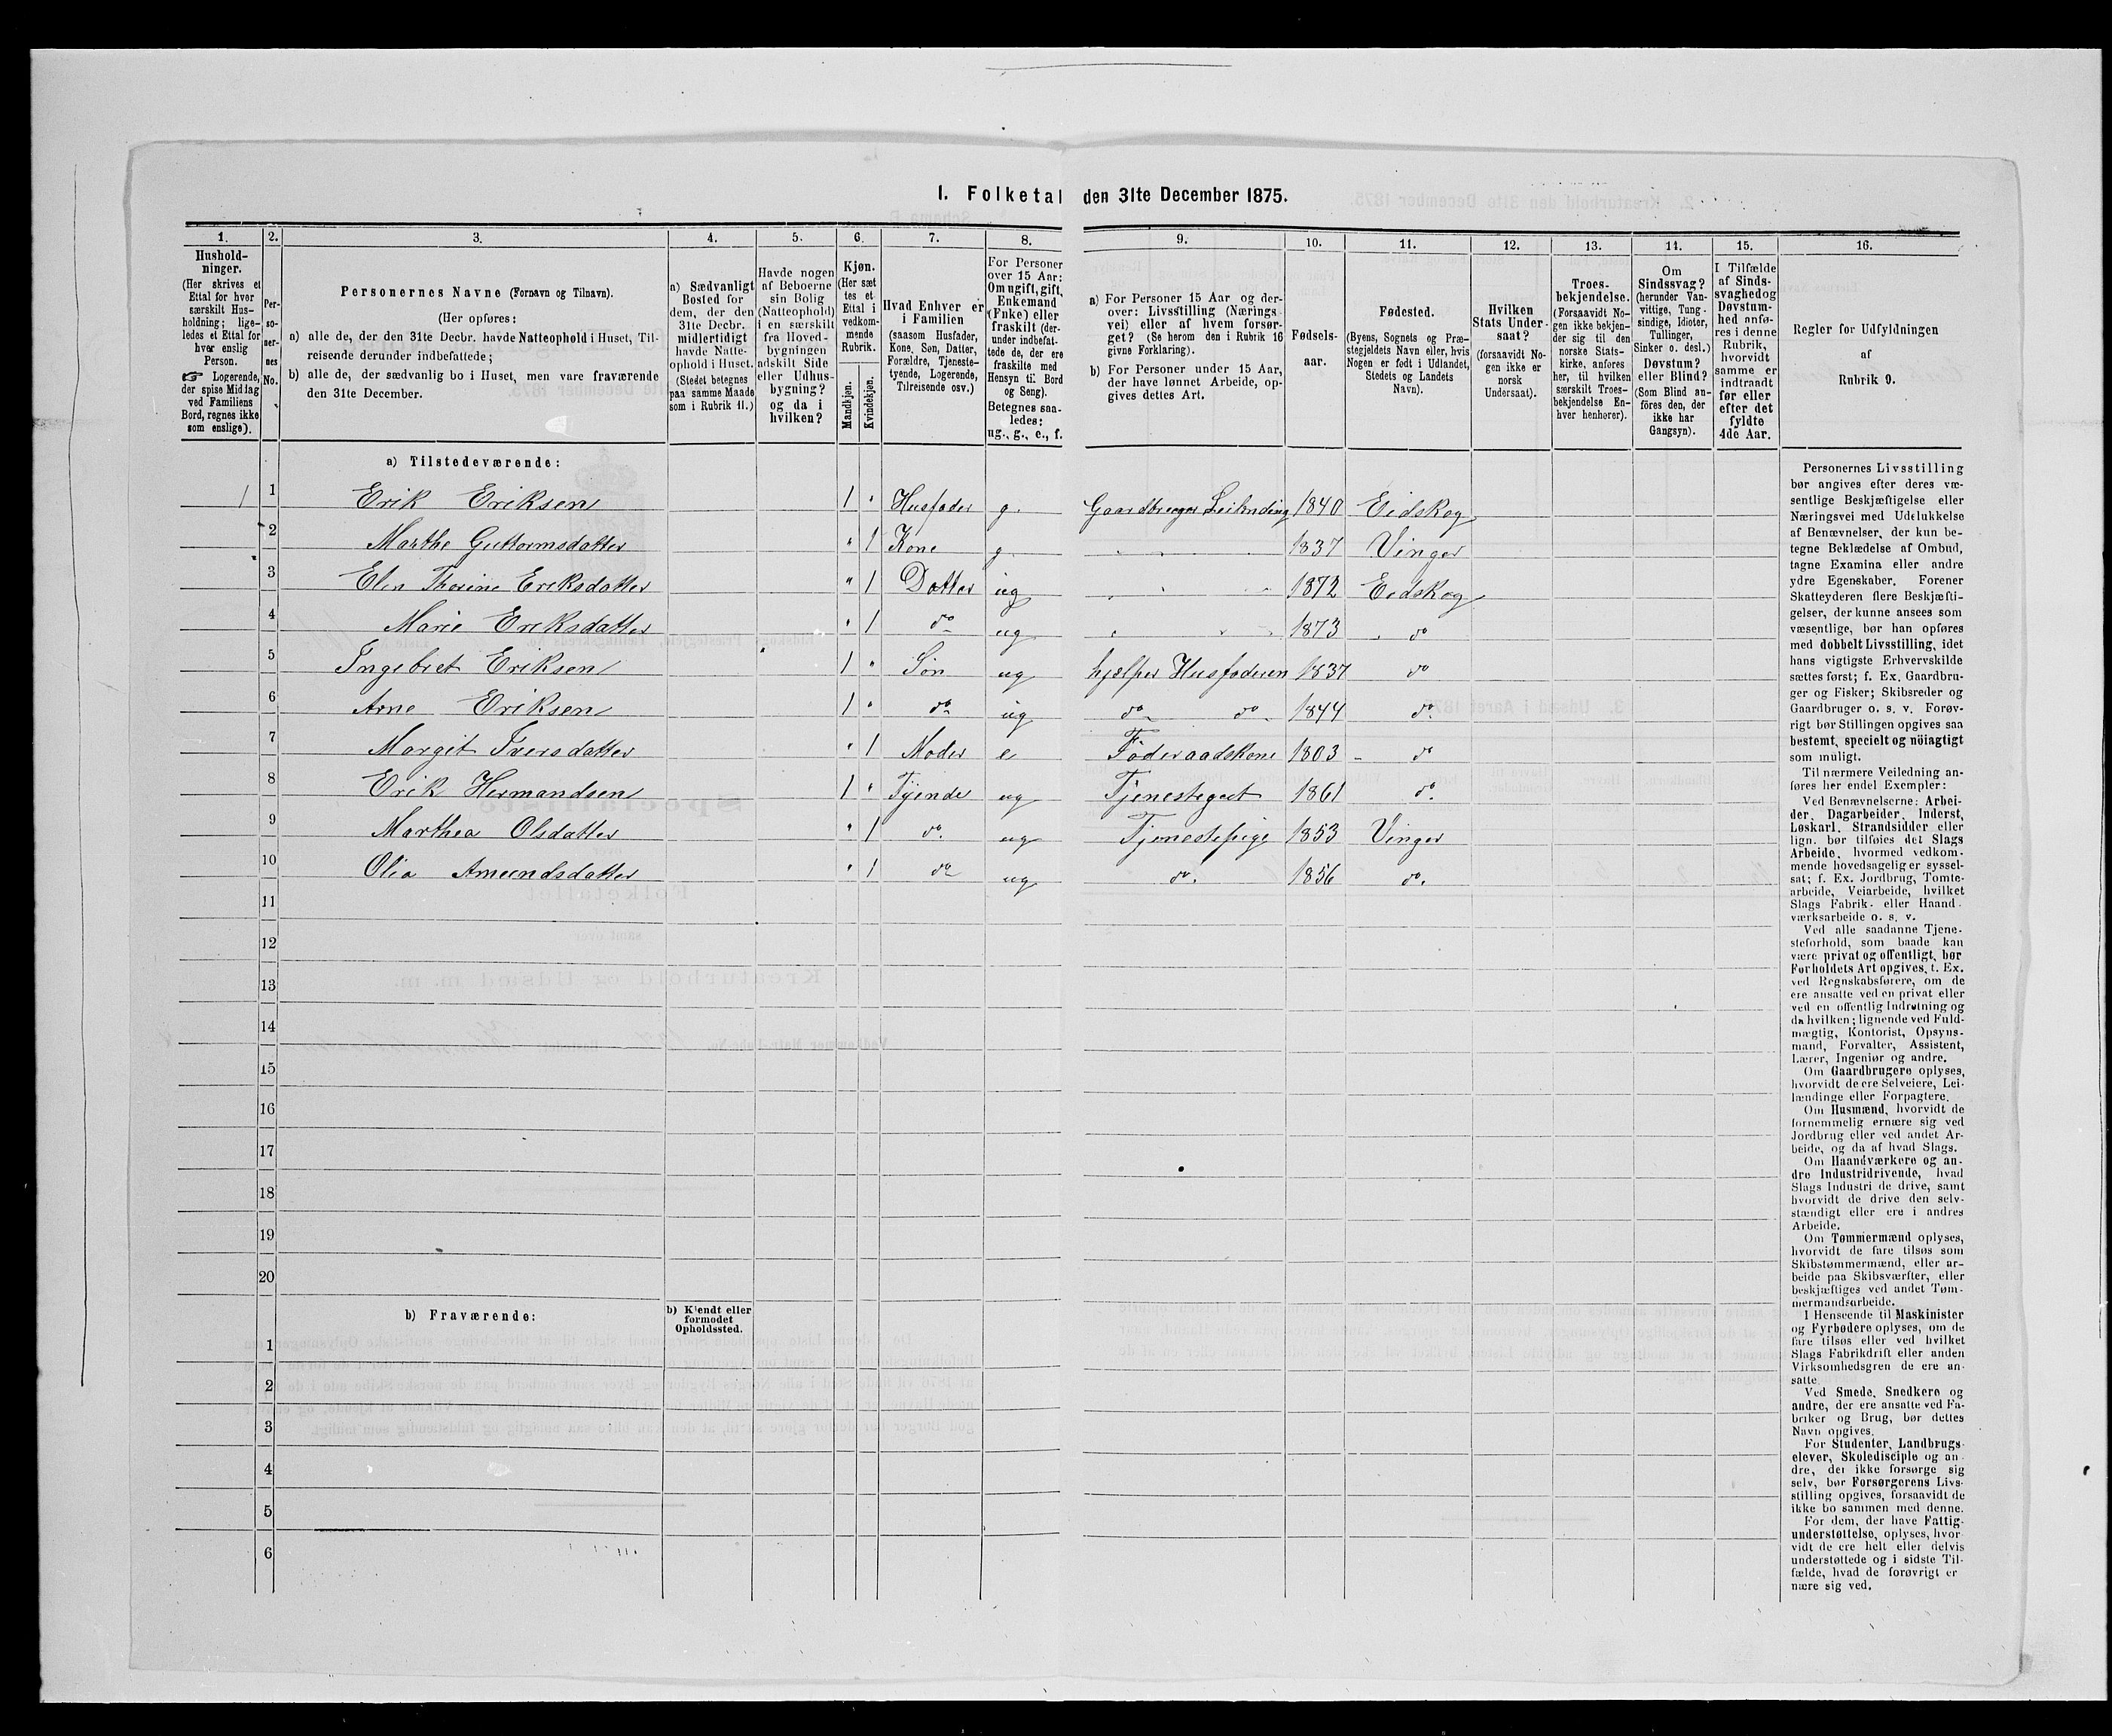 I. Folketal den 31te December 1875.
1. 2. 3. 4. 5. 6. 7. 8. 9. 10. 11. 12. 13. 14. 15. 16.
Hushold-
ninger.
(Her skrives et
Ettal for hver
særskilt Hus-
holdning; lige-
ledes et Ettal for
hver enslig
Person.
☞ Logerende,
der spise Middag
ved Familiens
Bord, regnes ikke
som enslige).
Per-
so-
ner-
nes
No.
Personernes Navne (Fornavn og Tilnavn).
(Her opføres:
a) alle de, der den 31te Decbr. havde Natteophold i Huset, Til-
reisende derunder indbefattede;
b) alle de, der sædvanlig bo i Huset, men vare fraværende
den 31te December.
a) Sædvanligt
Bosted for
dem, der den
31te Decbr.
midlertidigt
havde Natte-
ophold i Huset.
(Stedet betegnes
paa samme Maade
som i Rubrik 11.)
Havde nogen
af Beboerne
sin Bolig
(Natteophold)
i en særskilt
fra Hoved-
bygningen
adskilt Side
eller Udhus-
bygning?
og da i
hvilken?
Kjøn.
(Her sæt
tes et
Ettal i
vedkom-
mende
Rubrik.
Mandkjøn.
Kvindekjøn.
Hvad Enhver er
i Familien
(saasom Husfader,
Kone, Søn, Datter,
Forældre, Tjeneste-
tyende, Logerende,
Tilreisende osv.)
For Personer
over 15 Aar:
Om ugift, gift,
Enkemand
(Enke) eller
fraskilt (der-
under indbefat-
tede de, der ere
fraskilte med
Hensyn til Bord
og Seng).
Betegnes saa-
ledes:
ug., g., e., f.
a) For Personer 15 Aar og der-
over: Livsstilling (Nærings-
vei) eller af hvem forsør-
get? (Se herom den i Rubrik 16
givne Forklaring).
b) For Personer under 15 Aar,
der have lønnet Arbeide, op-
gives dettes Art.
Fødsels-
aar.
Fødested.
(Byens, Sognets og Præ-
stegjeldets Navn eller, hvis
Nogen er født i Udlandet,
Stedets og Landets
Navn).
Hvilken
Stats Under-
saat?
(forsaavidt No-
gen ikke er
norsk
Undersaat).
Troes-
bekjendelse.
(Forsaavidt No-
gen ikke bekjen-
der sig til den
norske Stats-
kirke, anføres
her, til hvilken
særskilt Troes-
bekjendelse En-
hver henhører).
Om
Sindssvag?
(herunder Van-
vittige, Tung-
sindige, Idioter,
Tullinger,
Sinker o. desl.)
Døvstum?
eller Blind?
(Som Blind an-
føres den, der
ikke har
Gangsyn).
I Tilfælde
af Sinds-
svaghed og
Døvstum-
hed anfø-
res i denne
Rubrik,
hvorvidt
samme er
indtraadt
før eller
efter det
fyldte
4de Aar.
Regler for Udfyldningen
af
Rubrik 9.
a) Tilstedeværende:
1 1 Erik Eriksen 1 " Husfader g. Gaardbruger Leilending 1840 Eidskog
2 Marthe Guttormsdatter " 1 Kone g. 1837 Vinger
3 Elen Thorine Eriksdatter " 1 Datter ug 1872 Eidskog
4 Marie Eriksdatter " 1 do ug 1873 do
5 Ingebret Eriksen 1 " Søn ug hjælper Husfaderen 1837 do
6 Arne Eriksen 1 " do ug do do 1844 do
7 Margit Iversdatter " 1 Moder e Føderaadskone 1803 do
8 Erik Hermandsen 1 " Tyende ug Tjenestegut 1861 do
9 Marthea Olsdatter " 1 do. ug Tjenestepige 1853 Vinger
10 Olia Amundsdatter " 1 do ug do. 1856 do.
11
12
13
14
15
16
17
18
19
20
b) Fraværende:
b) Kjendt eller
formodet
Opholdssted.
1
2
3
4
5
6
Personernes Livsstilling
bør angives efter deres væ-
sentlige Beskjæftigelse eller
Næringsvei med Udelukkelse
af Benævnelser, der kun be-
tegne Beklædelse af Ombud,
tagne Examina eller andre
ydre Egenskaber. Forener
Skatteyderen flere Beskjæfti-
gelser, der kunne ansees som
væsentlige, bør han opføres
med dobbelt Livsstilling, idet
hans vigtigste Erhvervskilde
sættes først; f. Ex. Gaardbru-
ger og Fisker; Skibsreder og
Gaardbruger o. s. v. Forøv-
rigt bør Stillingen opgives saa
bestemt, specielt og nöiagtigt
som muligt.
Til nærmere Veiledning an-
føres her endel Exempler:
Ved Benævnelserne: Arbei-
der, Dagarbeider, Inderst,
Løskarl, Strandsidder eller
lign. bør tilføies det Slags
Arbeide, hvormed vedkom-
mende hovedsagelig er syssel-
sat; f. Ex. Jordbrug, Tomte-
arbeide, Veiarbeide, hvilket
Slags Fabrik- eller Haand-
værksarbeide o. s. v.
Ved alle saadanne Tjene-
steforhold, som baade kan
være privat og offentligt, bør
Forholdets Art opgives, t. Ex.
ved Regnskabsførere, om de
ere ansatte ved en privat eller
ved en offentlig Indretning og
da hvilken; lignende ved Fuld-
mægtig, Kontorist, Opsyns-
mand, Forvalter, Assistent,
Lærer, Ingeniør og andre.
Om Gaardbrugere oplyses,
hvorvidt de ere Selveiere, Lei-
lændinge eller Forpagtere.
Om Husmænd, hvorvidt de
fornemmelig ernære sig ved
Jordbrug eller ved andet Ar-
beide, og da af hvad Slags.
Om Haandværkere og an-
dre Industridrivende, hvad
Slags Industri de drive, samt
hvorvidt de drive den selv-
stændigt eller ere i andres
Arbeide.
Om Tømmermænd oplyses,
hvorvidt de fare tilsøs som
Skibstømmermænd, eller ar-
beide paa Skibsværfter, eller
beskjæftiges ved andet Tøm-
mermandsarbeide.
I Henseende til Maskinister
og Fyrbødere oplyses, om de
fare tilsøs eller ved hvilket
Slags Fabrikdrift eller anden
Virksomhedsgren de ere an-
satte.
Ved Smede, Snedkere og
andre, der ere ansatte ved Fa-
briker og Brug, bør dettes
Navn opgives.
For Studenter, Landbrugs-
elever, Skoledisciple og an-
dre, der ikke forsørge sig
selv, bør Forsørgerens Livs-
stilling opgives, forsaavidt de
ikke bo sammen med denne.
For dem, der have Fattig-
understøttelse, oplyses, hvor-
vidt de ere helt eller delvis
understøttede og i sidste Til-
fælde, hvad de forøvrigt er-
nære sig ved.